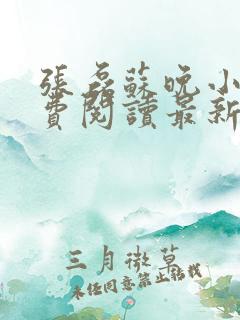 張磊蘇晚小
費閱讀最新
三月微草
未經同意禁止轉載